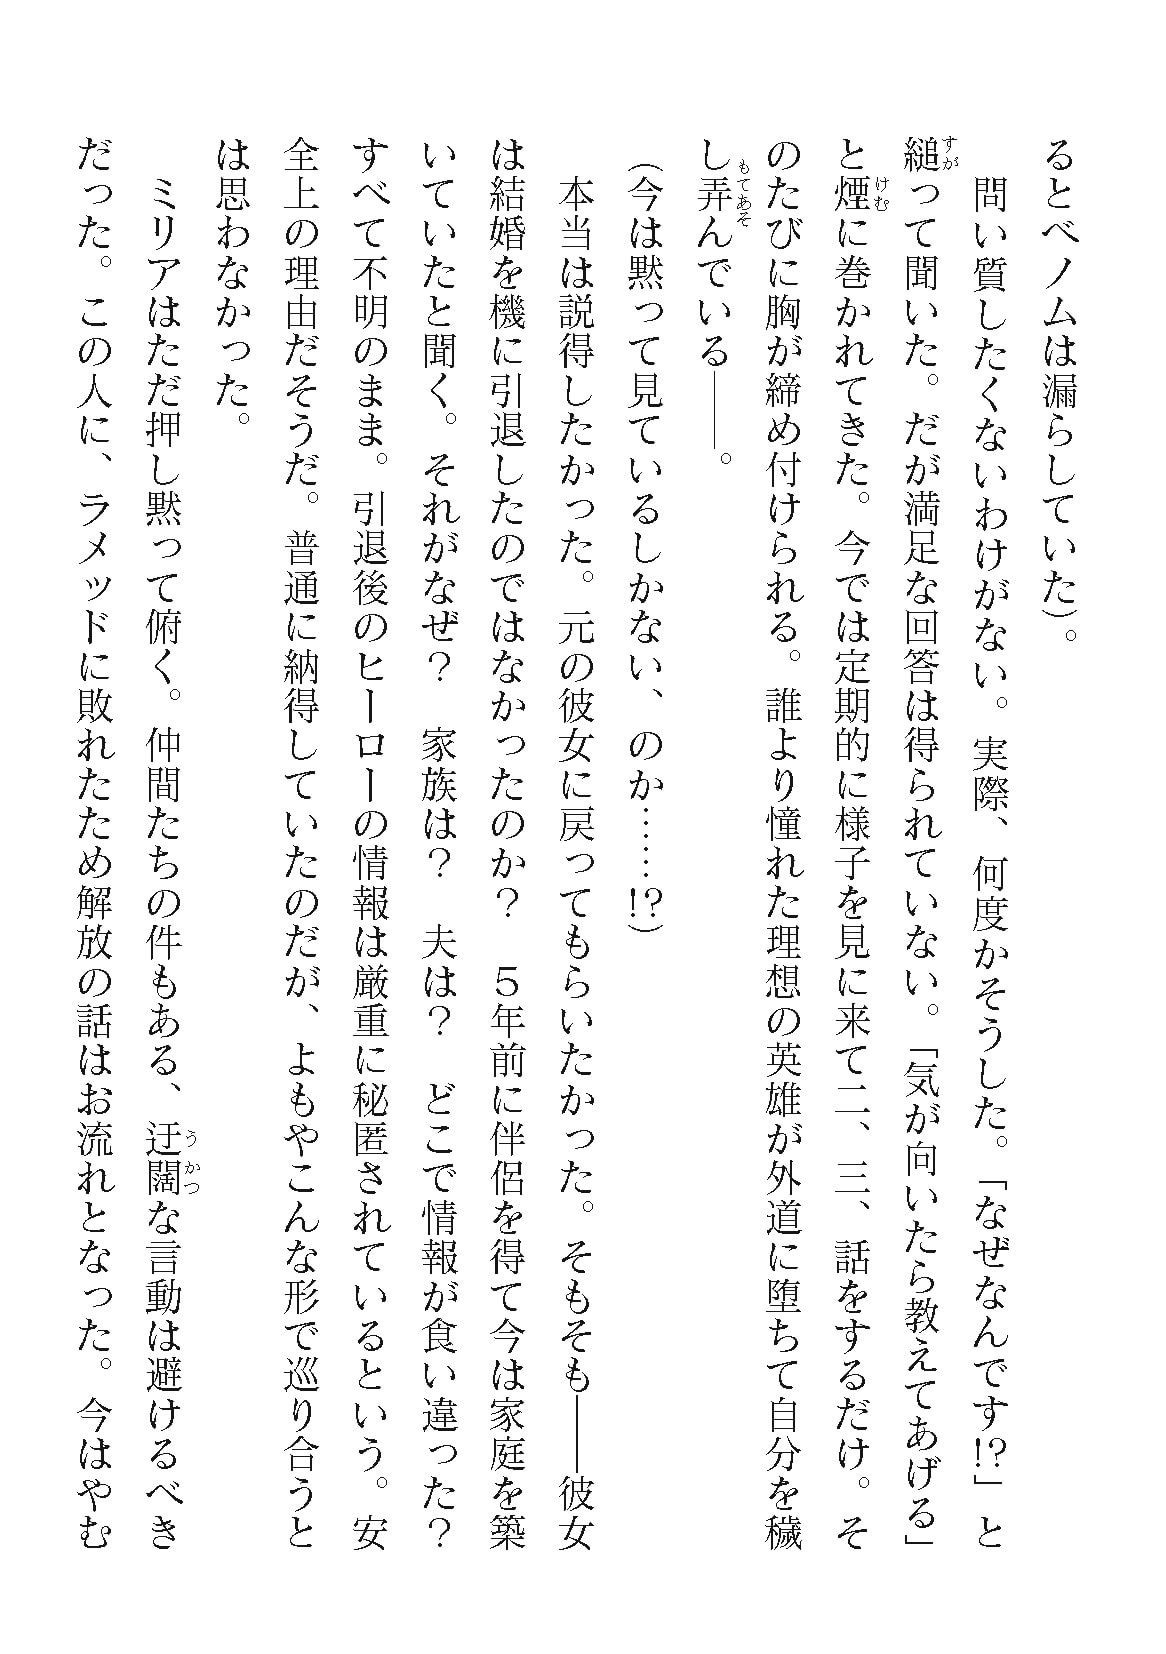 るとベノムは漏らしていた）。
　問い質したくないわけがない。実際、何度かそうした。「なぜなんです!?」と
縋って聞いた。だが満足な回答は得られていない。「気が向いたら教えてあげる」
と煙に巻かれてきた。今では定期的に様子を見に来て二、三、話をするだけ。そ
のたびに胸が締め付けられる。誰より憧れた理想の英雄が外道に堕ちて自分を穢
し弄んでいる――。
（今は黙って見ているしかない、のか……!?）
　本当は説得したかった。元の彼女に戻ってもらいたかった。そもそも――彼女
は結婚を機に引退したのではなかったのか？　５年前に伴侶を得て今は家庭を築
いていたと聞く。それがなぜ？　家族は？　夫は？　どこで情報が食い違った？
すべて不明のまま。引退後のヒーローの情報は厳重に秘匿されているという。安
全上の理由だそうだ。普通に納得していたのだが、よもやこんな形で巡り合うと
は思わなかった。
　ミリアはただ押し黙って俯く。仲間たちの件もある、迂闊な言動は避けるべき
だった。この人に、ラメッドに敗れたため解放の話はお流れとなった。今はやむ